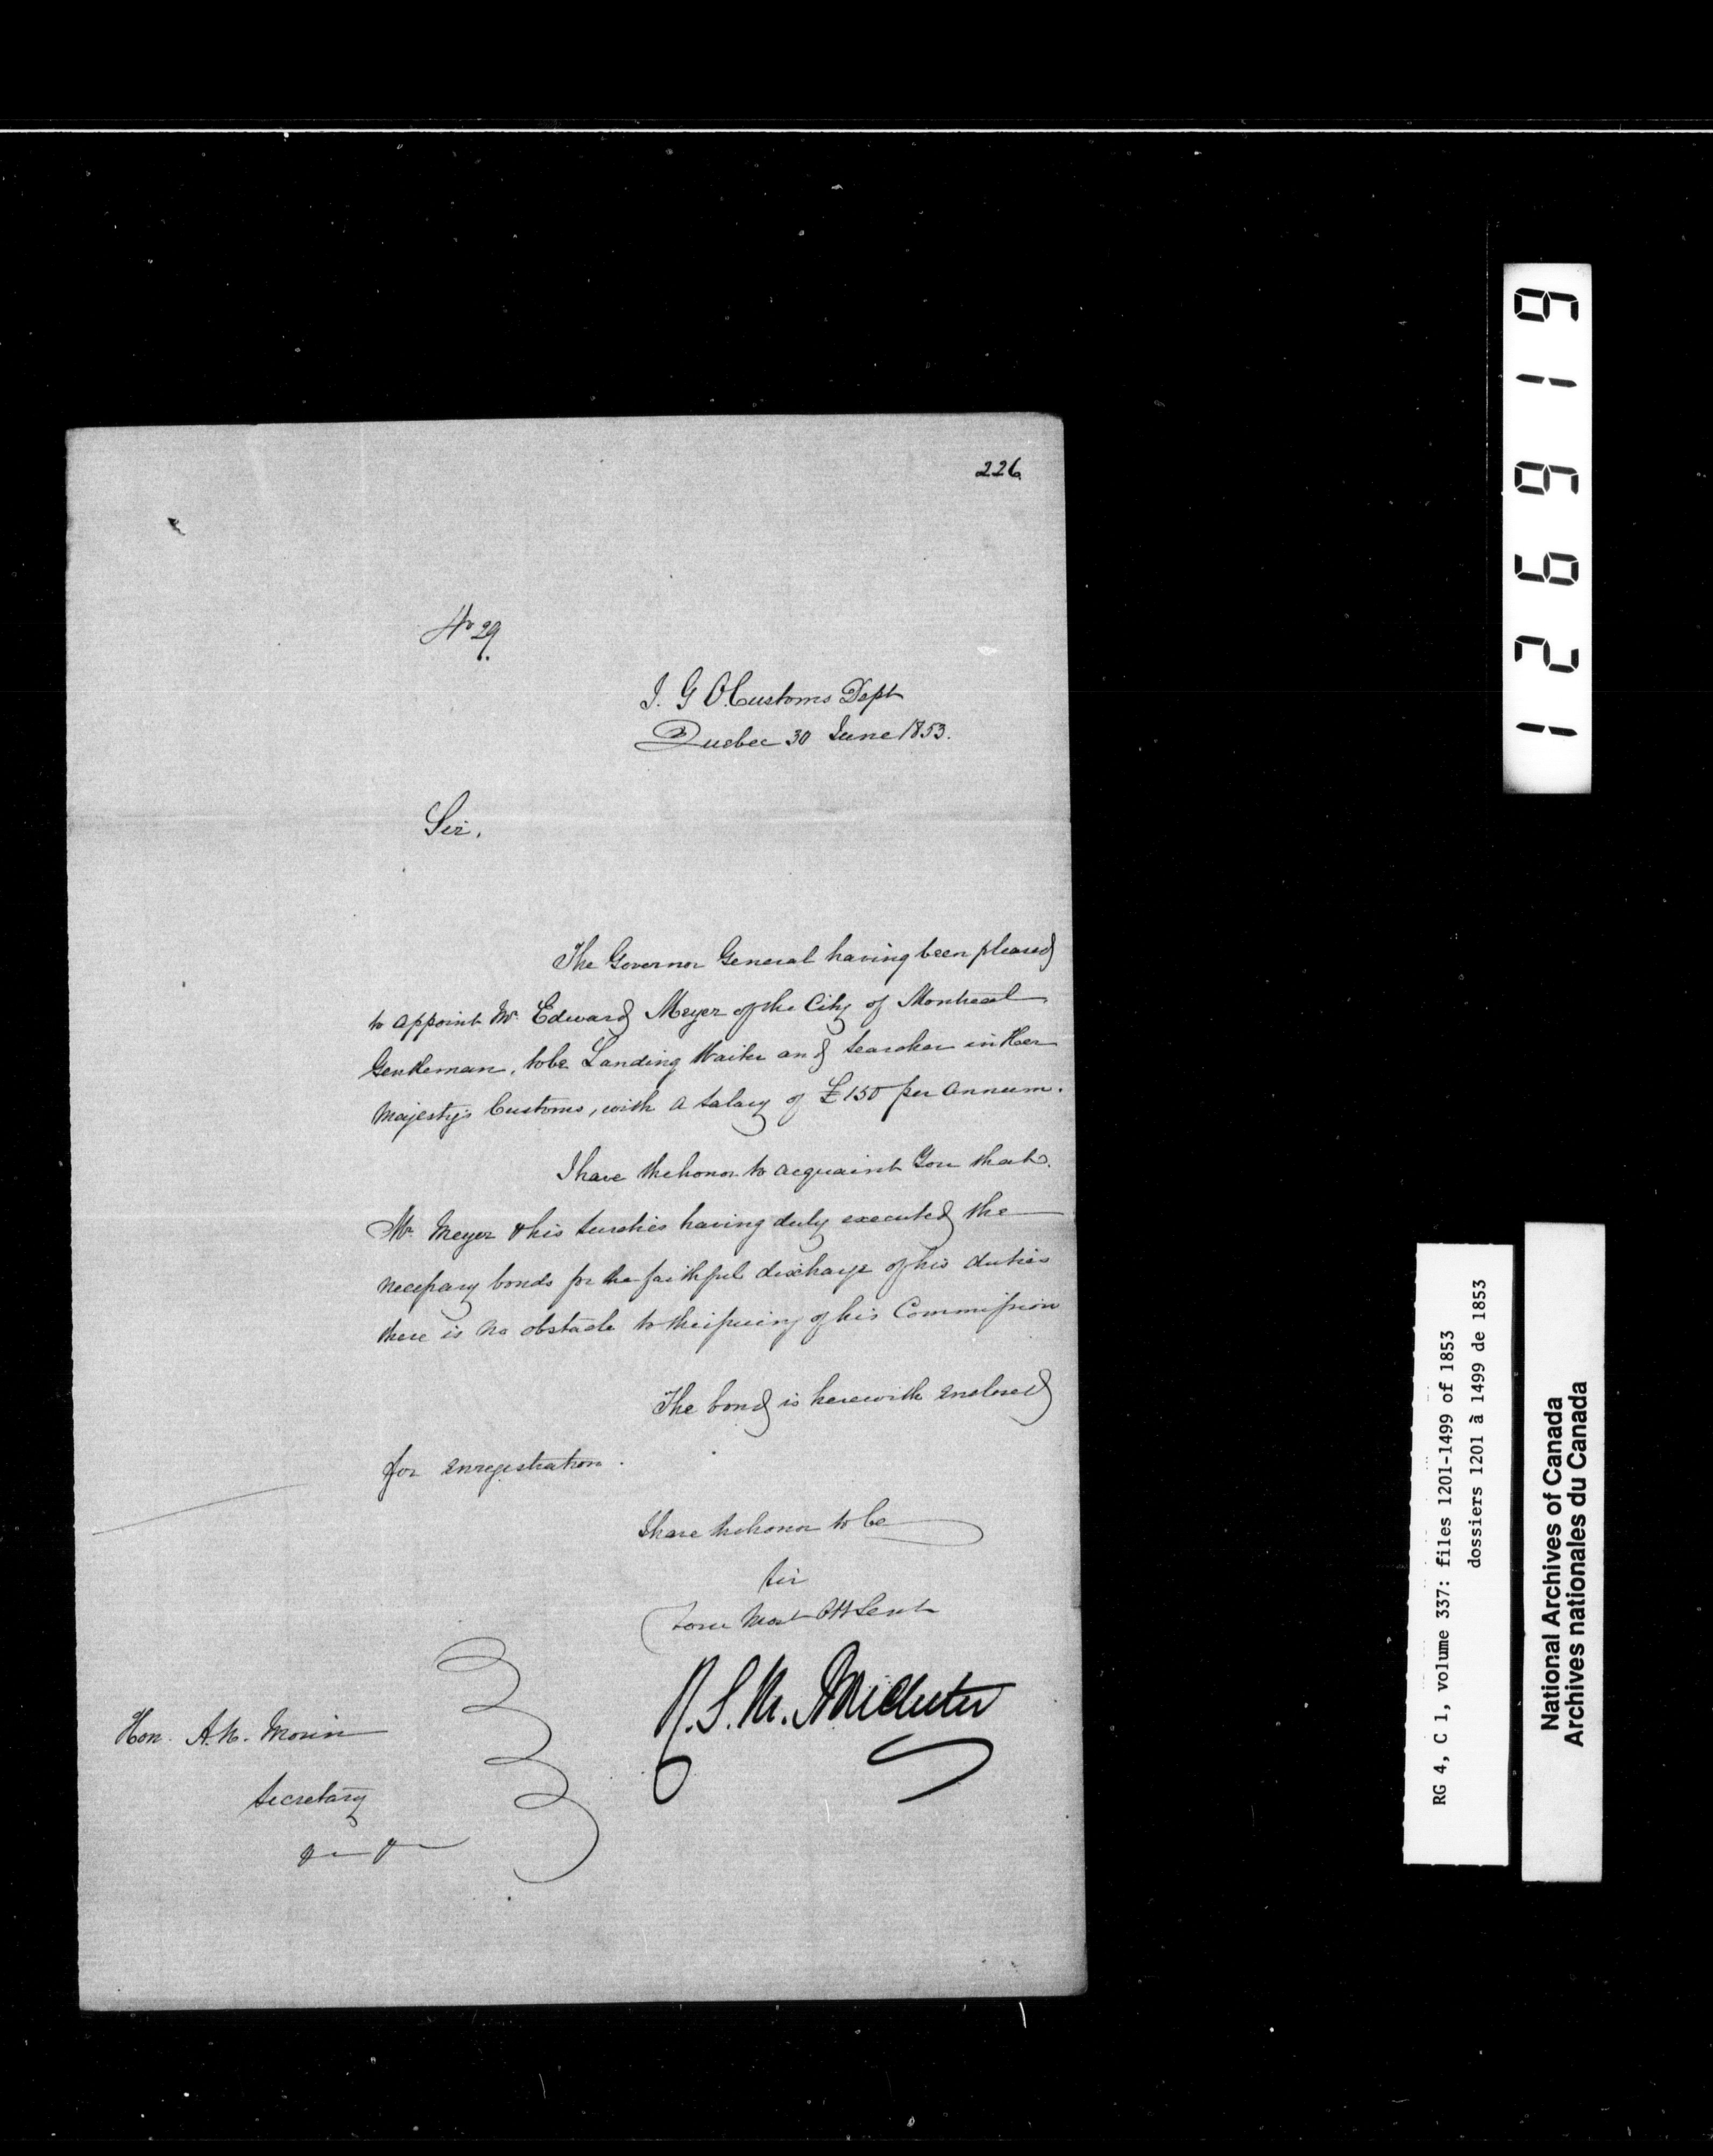 226
No 29.
I. G. O. Customs Dept
Quebec 30 June 1853.
Sir,
The Governor General having been pleased
to appoint Mr Edward Meyer of the City of Montreal
Gentleman, to be Landing Waiter and Searcher in Her
Majesty's Customs, with a Salary of £150 per Annum.
I have the honor to acquaint You that
Mr Meyer & his sureties having duly executed the
necessary bonds for the faithful discharge of his duties
there is no obstacle to the issuing of his Commission
The bond is herewith enclosed
for enregistration.
I have the honor to be
Sir
Your Most Obt Servt
R. S. M. Bouchette
Hon. A. N. Morin
Secretary
& &
126919
RG 4, C 1, volume 337: files 1201-1499 of 1853
dossiers 1201 à 1499 de 1853
National Archives of Canada
Archives nationales du Canada